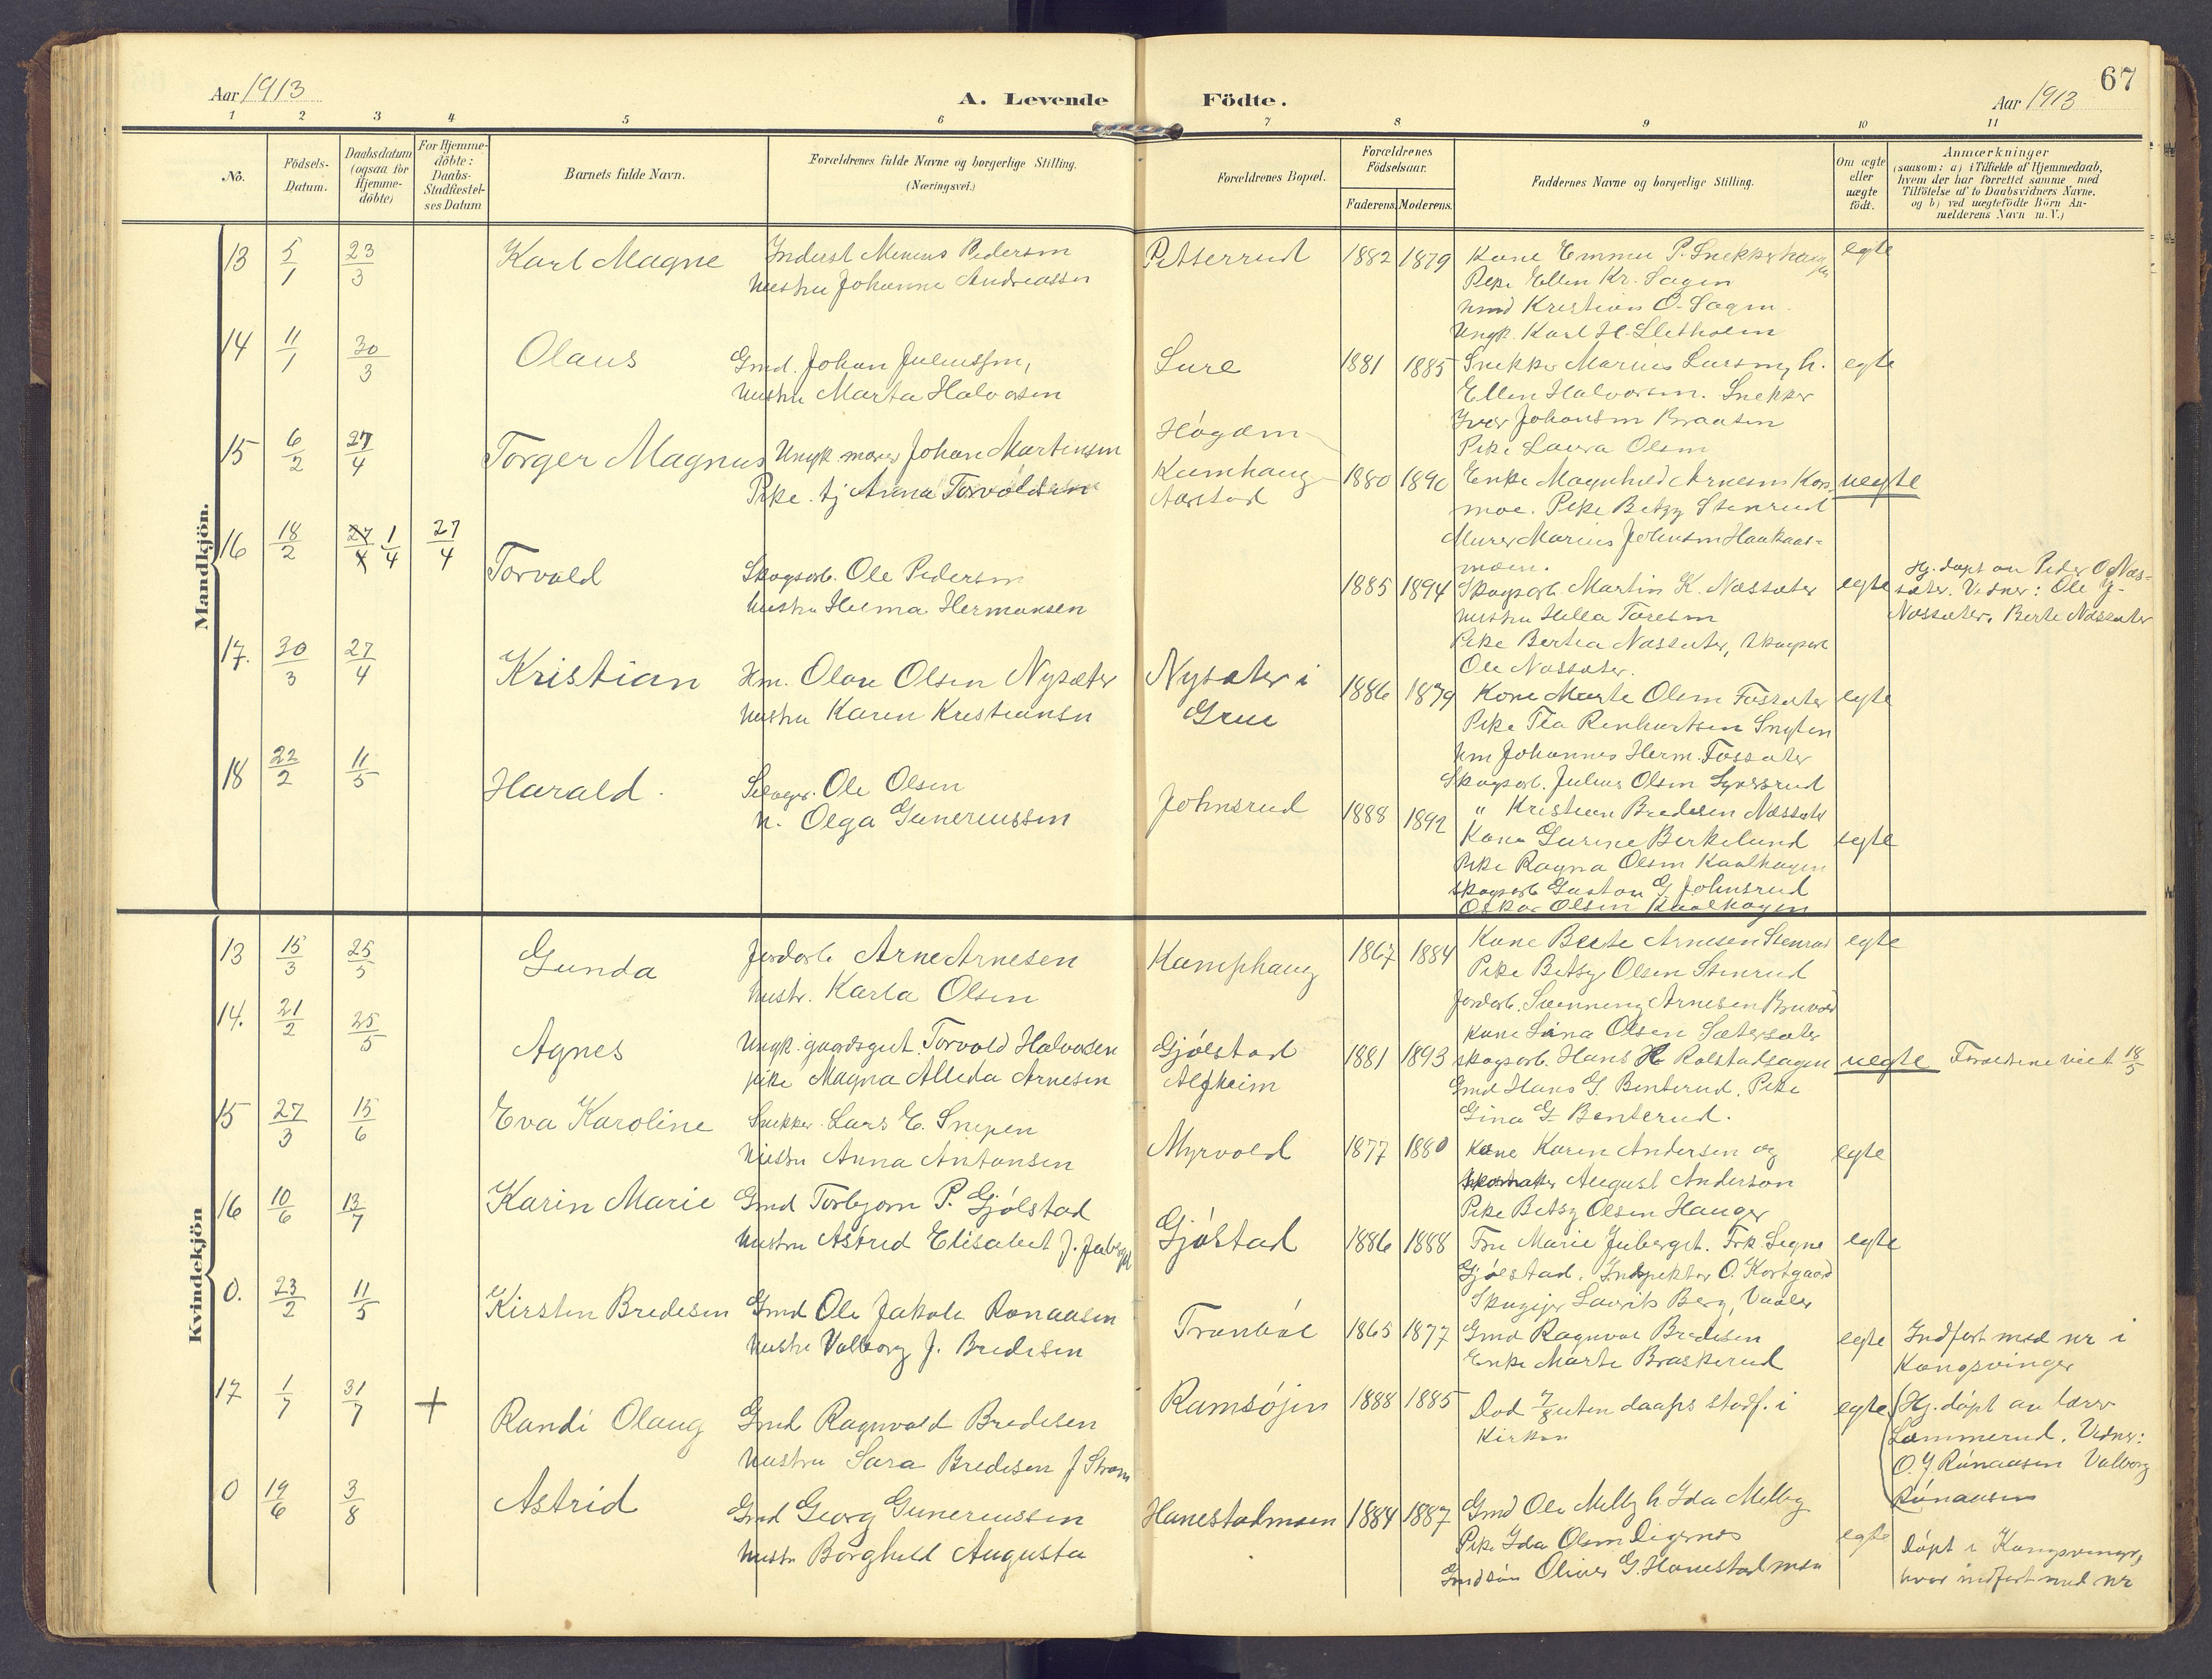 67
Aar 1913
A. Levende Födte.
Aar 1913
1 2 3 4 5 6 7 8 9 10 11
No.
Födsels-Datum.
Daabsdatum (ogsaa for Hjemme-döbte)
For Hjemme-döbte: Daabs-Stadfestel-ses Datum
Barnets fulde Navn.
Forældrenes fulde Navne og borgerlige Stilling.
(Næringsvei.)
Forældrenes Bopæl.
Forældrenes Födselsaar.
Faderens. Moderens.
Faddernes Navne og borgerlige Stilling.
Om ægte eller uægte födt.
Anmærkninger
(saasom: a) i Tilfælde af Hjemmedaab,
hvem der har forrettet samme med
Tilföielse af to Daabsvidners Navne.
og b) ved uægtefödte Börn An-
melderens Navn m. V.)
Mandkjön.
13 5/1 23/3 Karl Magne
Inderst Menius Pedersen
Hustru Johanne Andreassen
Petserrud 1882 1879
Kone Emma P. Snekkerhaugen
Pike Ellen Kr. Sagen
Kristian O. Sagen
Ungk. Karl H.
egte
14 11/1 30/3 Olaus
Gmd. Johan Juliussen,
Hustru Marta Halvorsen
Sure 1881 1885
Snekker Marius Larsen, h.
Ellen Halvorsen. Snekker
Iver Johansen Braaten
Pike Laura Olsen
egte
15 6/2 27/4 Torger Magnus
Ungk. murer Johan Martinsen
Pike. tj Anna Torvaldsen
Høgåsen
Kamphaug
Aarstad
1880 1890
Enke Magnhild Arnesen Kors-
moe. Pike Betzy Stenrud
Murer Marius Johnsen Haukaas-
moen.
uegte
16 18/2 27/4 1/4 27/4 Torvald
Skogsarb. Ole Pedersen
Hustru Helma Hermansen
1885 1894
Skogsarb. Martin K. Næssæter
Hustru Hella Toresen
Pike Bertea Næssæter, Skogsarb
Ole Næssæter.
egte
Hj. døpt av Peder O Næs-
sæter. Vidner: Ole
Næssæter, Berte Næssæter
17. 30/3 27/4 Kristian
Hm. Olav Olsen Nysæter
Hustru Karen Kristiansen
Nysæter i
Grue
1886 1879
Kone Marte Olsen Fossæter
Pike Tea Renhartsen Snyten
Hm Johannes Herm. Fossæter
Skogsarb. Julius Olsen Syversrud
" Kristian Bredesen Næssæter
egte
18 22/2 11/5 Harald.
Ole Olsen
h. Olga Guneriussen
Johnsrud 1888 1892
Kone Gurine Berkelund
Pike Ragna Olsen Kaalhagen
Skogsarb Gustav G Johnsrud
Oskar Olsen Kaalhagen
egte
Kvindekjön
13 15/3 25/5 Gunda
Jordarb Arne Arnesen
Hustr. Karla Olsen
Kamphaug 1867 1884
Kone Beate Arnesen Stenrud
Pike Betsy Olsen Stenrud
Jordarb. Svenning Arnesen Bruvold
Kone Lina Olsen Sætersæter
egte
14. 21/2 25/5 Agnes
Ungk. gaardsgut. Torvald Halvorsen
pike Magna Alleda Arnesen
Gjølstad
Alfheim
1881 1893
Skogsarb. Hans H Kolstadsagen
Gmd Hans G. Benterud. Pike
Gina G Benterud.
uegte
Forældrene viet 18/5
15 27/3 15/6 Eva Karoline
Snekker. Lars E. Snepen
Hustru Anna Antonsen
Myrvold 1877 1880
Kone Karen Andersen og
August Anderson
Pike Betsy Olsen Hauger
egte
16 10/6 13/7 Karin Marie
Gmd Torbjørn P. Gjølstad
Hustru Astrid Elisabet f. Juberget
Gjølstad 1886 1888
Fru Marie Juberget. Frk. Signe
Gjølstad. Inspektør O. Kortgaard
Skogejer Laurits Berg, Vaaler
egte
0. 23/2 11/5 Kirsten Bredesen
Gmd Ole Jakob Rønaasen
Hustru Valborg f. Bredesen
Tranbøl 1865 1877
Gmd Ragnval Bredesen
Enke Marte Braskerud
egte
Indført med nr i
Kongsvinger
17 1/7 31/7 + Randi Olaug
Gmd Ragnvald Bredesen
Hustru Sara Bredesen f Strøm
Ramsøjen 1888 1885
Død 7/8 uten daaps stadf. i
Kirken
egte
Hj. døpt av lærer
Lømmerud. Vidner:
O. J Rønaasen Valborg
Rønaasen
0 19/6 3/8 Astrid
Gmd Georg Gunerussen
Hustr Borghild Augusta
Hanestadmoen 1884 1887
Gmd Ole Melby h Ida Melby
Pike Ida Olsen Digernes
Gmdsøn Oliver G. Hanestadmoen
egte
Døpt i Kongsvinger,
hvor indført med nr